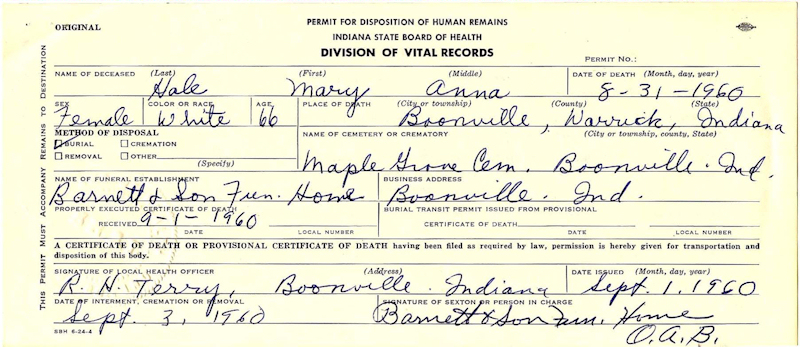 ORIGINAL
PERMIT FOR DISPOSITION OF HUMAN REMAINS
INDIANA STATE BOARD OF HEALTH
DIVISION OF VITAL RECORDS
PERMIT NO.:
THIS PERMIT MUST ACCOMPANY REMAINS TO DESTINATION
NAME OF DECEASED (Last) (First) (Middle) DATE OF DEATH (Month, day, year)
Hale Mary Anna 8-31-1960
SEX COLOR OR RACE AGE PLACE OF DEATH (City or township) (County) (State)
Female White 66 Boonville, Warrick, Indiana
METHOD OF DISPOSAL NAME OF CEMETERY OR CREMATORY (City or township, county, State)
BURIAL CREMATION
REMOVAL OTHER
(Specify)
Maple Grove Cem. Boonville. Ind.
NAME OF FUNERAL ESTABLISHMENT BUSINESS ADDRESS
Barnett & Son Fun. Home Boonville. Ind.
PROPERLY EXECUTED CERTIFICATE OF DEATH BURIAL TRANSIT PERMIT ISSUED FROM PROVISIONAL
RECEIVED 9-1-1960 CERTIFICATE OF DEATH
DATE LOCAL NUMBER DATE LOCAL NUMBER
A CERTIFICATE OF DEATH OR PROVISIONAL CERTIFICATE OF DEATH having been filed as required by law, permission is hereby given for transportation and
disposition of this body.
SIGNATURE OF LOCAL HEALTH OFFICER (Address) DATE ISSUED (Month, day, year)
R. H. Terry, Boonville. Indiana Sept. 1, 1960
DATE OF INTERMENT, CREMATION OR REMOVAL SIGNATURE OF SEXTON OR PERSON IN CHARGE
Sept. 3, 1960 Barnett & Son Fun. Home
O.A.B.
SBH 6-24-4